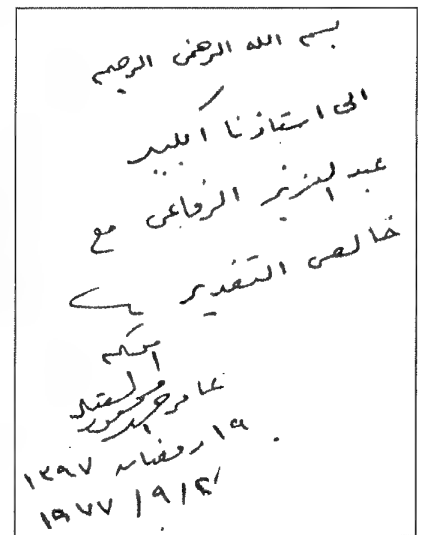 بسم الله الرحمن الرحيم
الى استاذنا الكبير
عبد العزيز الرفاعي مع
خالص التقدير
عامر
١٩ رمضان ١٣٩٧
١٩٧٧ / ٩ /